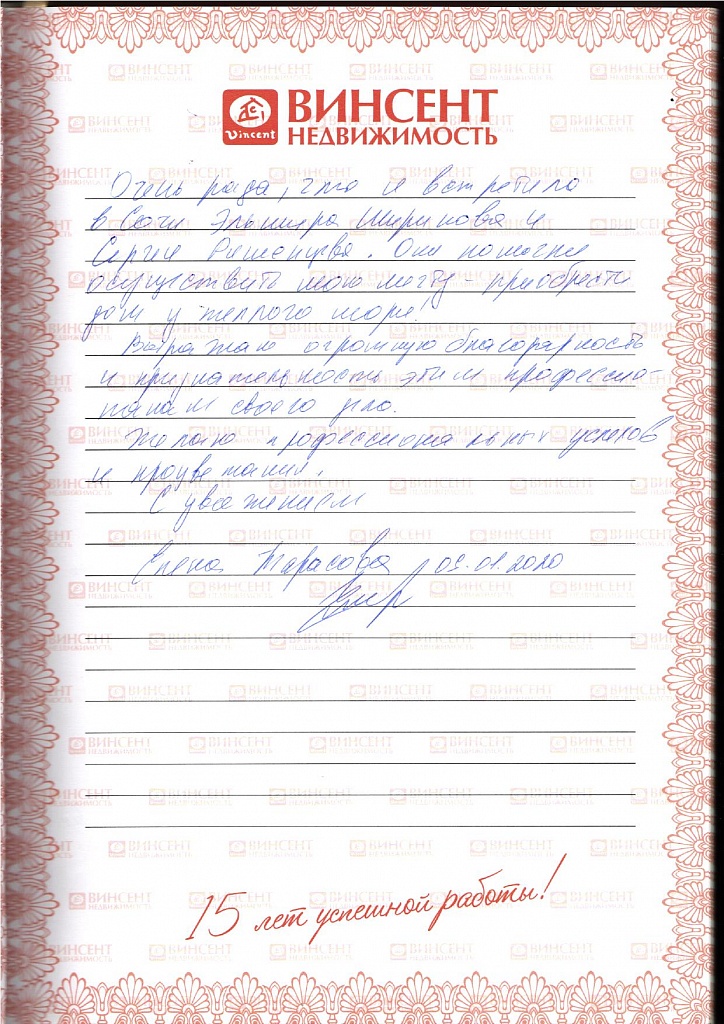 Vincent
ВИНСЕНТ
НЕДВИЖИМОСТЬ
Очень рада, что я встретила
в Сочи Эльмира Ширинова и
Сергея. Они помогли
осуществить мою мечту - приобрести
дом у теплого моря!
Выражаю огромную благодарность
и признательность этим профессио-
налам своего дела.
Желаю профессиональных успехов
и процветания.
С уважением
Елена Тарасова 05.01.2020
15 лет успешной работы!